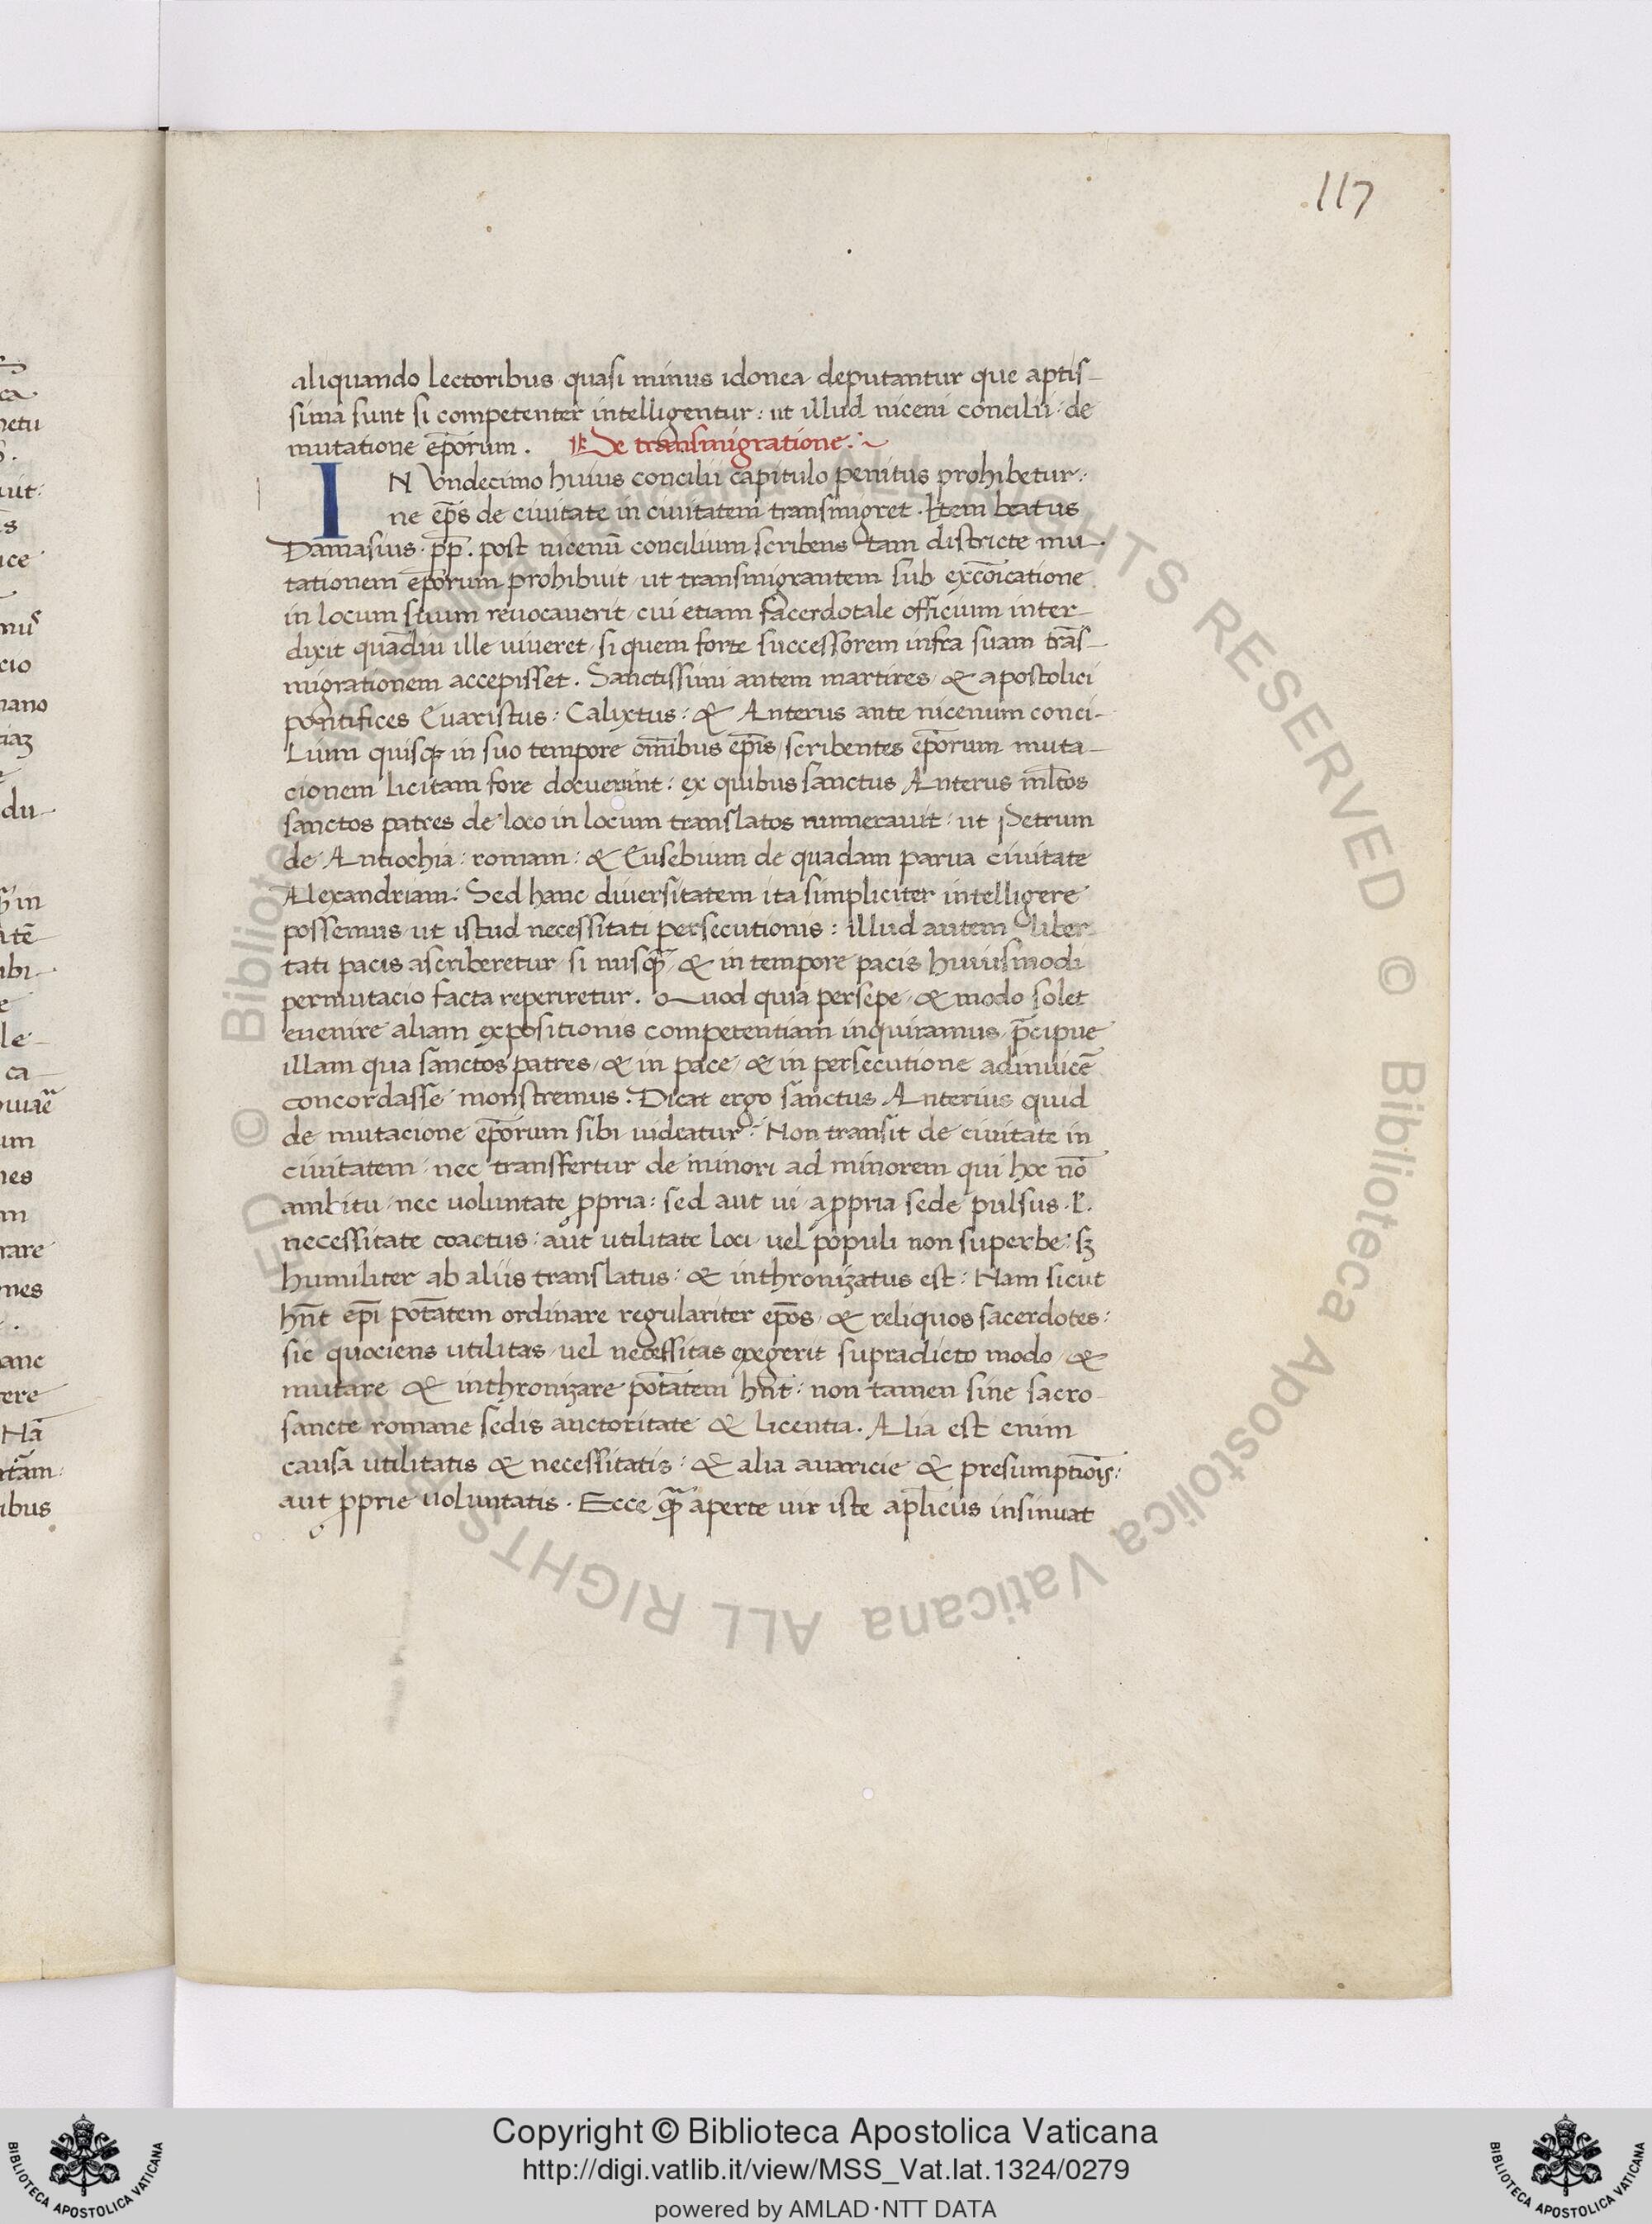 117
aliquando lectoribus quasi minus idonea deputantur que aptis-
sima sunt si competenter intelligentur: ut illud niceni concilii de
mutatione ep̄orum. De transmigratione:~
IN Vndecimo huius concilii capitulo penitus prohibetur:
ne ep̄s de ciuitate in ciuitatem transmigret. Item beatus
Damasius pp̄. post nicenū concilium scribens tam districte mu-
tationem ep̄orum prohibuit ut transmigrantem sub excōicatione
in locum suum reuocauerit cui etiam sacerdotale officium inter-
dixit quādiu ille uiueret si quem forte successorem infra suam trās-
migrationem accepisset. Sanctissimi autem martires & apostolici
pontifices Euaristus: Calixtus: & Anterus ante nicenum conci-
lium quisq in suo tempore om̄ibus ep̄is scribentes ep̄orum muta-
cionem licitam fore docuerint: ex quibus sanctus Anterus ml̄tos
sanctos patres de loco in locum translatos numerauit ut Petrum
de Antiochia: romam: & Eusebium de quadam parua ciuitate
Alexandriam: Sed hanc diuersitatem ita simpliciter intelligere
possemus ut istud necessitati persecutionis: illud autem liber
tati pacis ascriberetur si nusq̄ & in tempore pacis huiusmodi
permutacio facta reperiretur. Quod quia persepe & modo solet
euenire aliam expositionis competentiam inquiramus p̄cipue
illam qua sanctos patres & in pace & in persecutione adinuicē
concordasse monstremus. Dicat ergo sanctus Anterius quid
de mutacione ep̄orum sibi uideatur: Non transit de ciuitate in
ciuitatem nec transfertur de minori ad minorem qui hoc nō
ambitu nec uoluntate ppria: sed aut ui a ppria sede pulsus. ł.
necessitate coactus: aut utilitate loci uel populi non superbe: sꝫ
humiliter ab aliis translatus: & inthronizatus est: Nam sicut
hn̄t ep̄i potātem ordinare regulariter ep̄os & reliquos sacerdotes:
sic quociens utilitas uel necessitas exegerit supradicto modo &
mutare & inthronizare potātem hn̄t: non tamen sine sacro
sancte romane sedis auctoritate & licentia. Alia est enim
causa utilitatis & necessitatis: & alia auaricie & presumptiōis:
aut pprie uoluntatis. Ecce q̄ aperte uir iste ap̄licus insinuat
Copyright © Biblioteca Apostolica Vaticana
http://digi.vatlib.it/view/MSS_Vat.lat.1324/0279
powered by AMLAD·NTT DATA
BIBLIOTECA APOSTOLICA VATICANA
BIBLIOTECA APOSTOLICA VATICANA
© Biblioteca Apostolica Vaticana ALL RIGHTS RESERVED
© Biblioteca Apostolica Vaticana ALL RIGHTS RESERVED